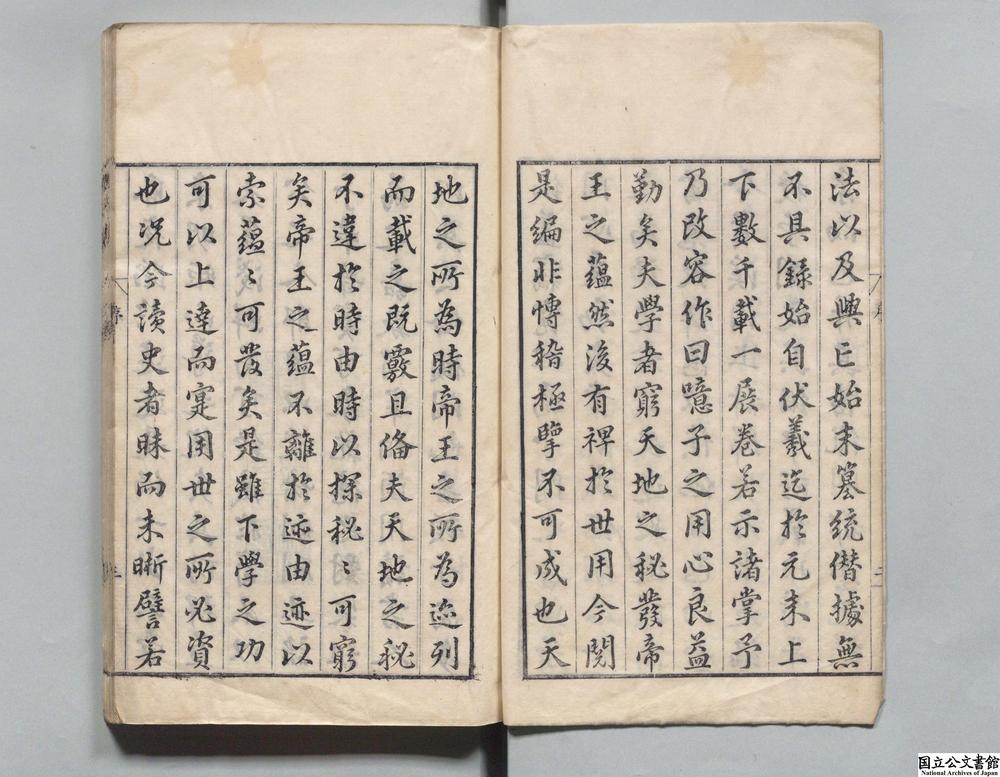 法以及興亡始末篡統僭據無
不具錄始自伏羲迄於元末上
下數千載一展卷若示諸掌予
乃改容作曰噫子之用心良益
勤矣夫學者窮天地之秘發帝
王之蘊然後有裨於世用今閱
是編非博稽極擥不可成也天
地之所為時帝王之所為迹列
而載之既覈且俻夫天地之秘
不違於時由時以探秘〻可窮
矣帝王之蘊不離於迹由迹以
索蘊〻可發矣是雖下學之功
可以上達而寔用世之所必資
也况今讀史者昧而未晣譬若
序
二
序
三
国立公文書館
National Archives of Japan